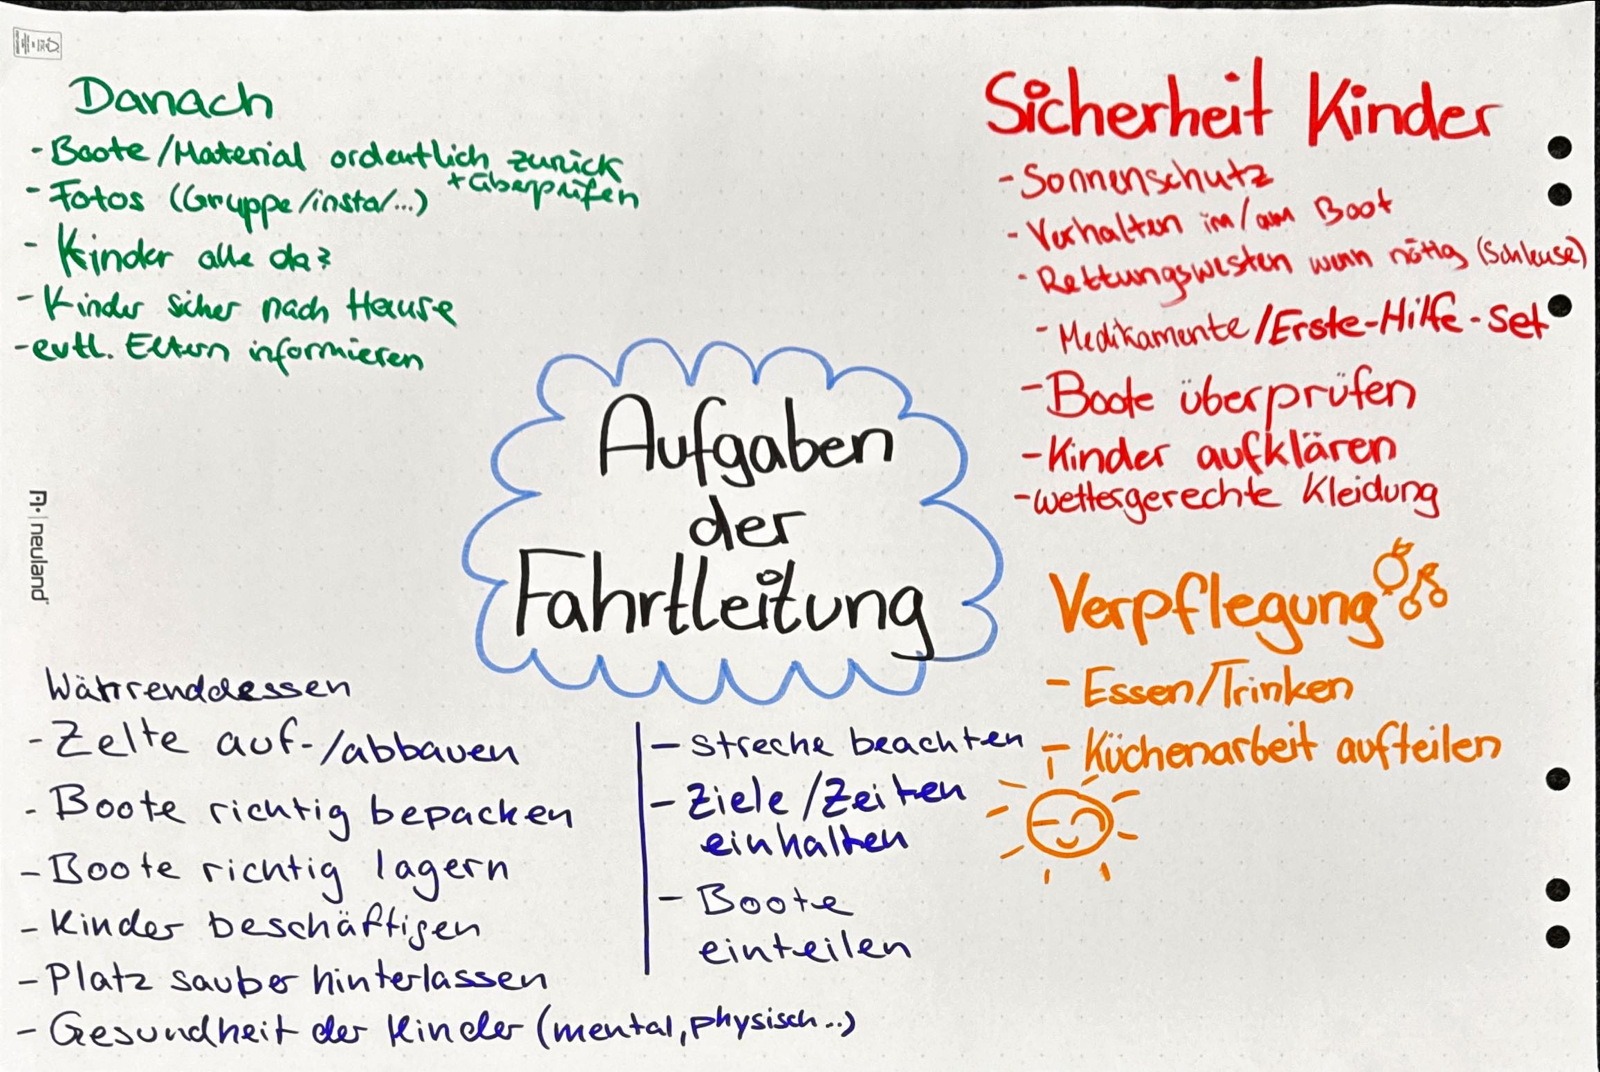 Danach
- Boote/Material ordentlich zurück
+ überprüfen
- Fotos (Gruppe/insta/...)
- Kinder alle da?
- Kinder sicher nach Hause
- evtl. Eltern informieren
Sicherheit Kinder
- Sonnenschutz
- Verhalten im/am Boot
- Rettungswesten wenn nötig (Schleuse)
- Medikamente/Erste-Hilfe-Set
- Boote überprüfen
- Kinder aufklären
- wettergerechte Kleidung
Aufgaben
der
Fahrtleitung
neuland
Verpflegung
- Essen/Trinken
- Küchenarbeit aufteilen
Währenddessen
- Zelte auf-/abbauen
- Boote richtig bepacken
- Boote richtig lagern
- Kinder beschäftigen
- Platz sauber hinterlassen
- Gesundheit der Kinder (mental, physisch..)
- Streche beachten
- Ziele/Zeiten
einhalten
- Boote
einteilen